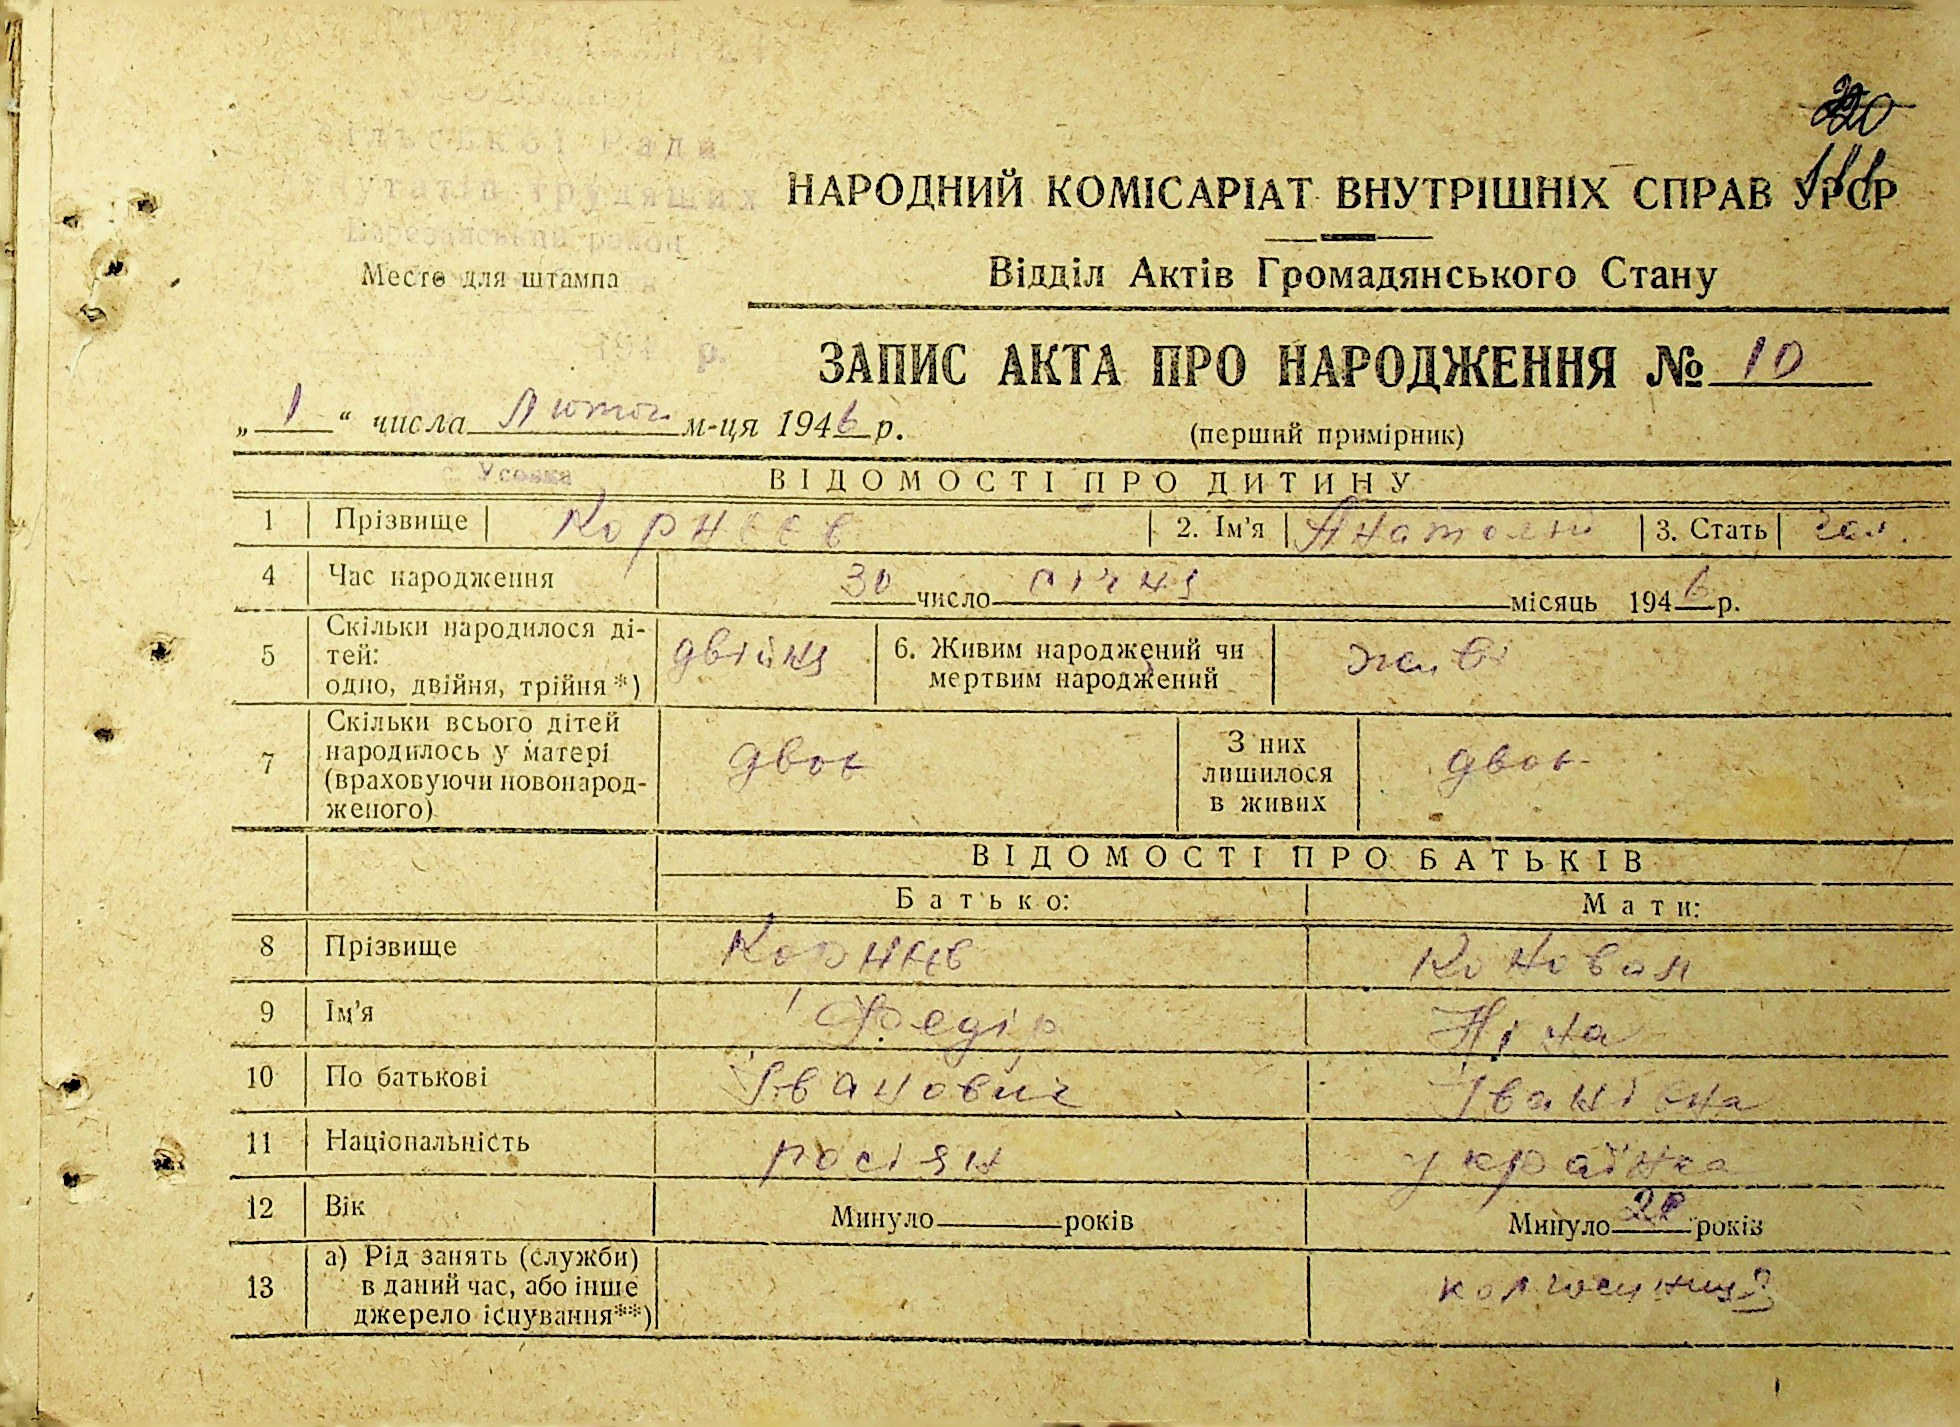 сільської Рада
депутатів трудящих
Березанський район
Место для штампа
194 р.
НАРОДНИЙ КОМІСАРІАТ ВНУТРІШНІХ СПРАВ УРСР
Відділ Актів Громадянського Стану
ЗАПИС АКТА ПРО НАРОДЖЕННЯ № 10
„ 1 “ числа Лютого м-ця 1946 р.
(перший примірник)
с. Усовка
ВІДОМОСТІ ПРО ДИТИНУ
1 Прізвище Корнєєв 2. Ім'я Анатолій 3. Стать чол.
4 Час народження 30 число січня місяць 1946 р.
5 Скільки народилося ді-
тей:
одно, двійня, трійня*) двійня
6. Живим народжений чи
мертвим народжений живі
7 Скільки всього дітей
народилось у матері
(враховуючи новонарод-
женого) двоє
З них
лишилося
в живих двоє
ВІДОМОСТІ ПРО БАТЬКІВ
Батько: Мати:
8 Прізвище Корнєєв Коновал
9 Ім'я Федір Ніна
10 По батькові Іванович Іванівна
11 Національність росіян українка
12 Вік Минуло років Минуло років
13 а) Рід занять (служби)
в даний час, або інше
джерело існування**) колгоспниця